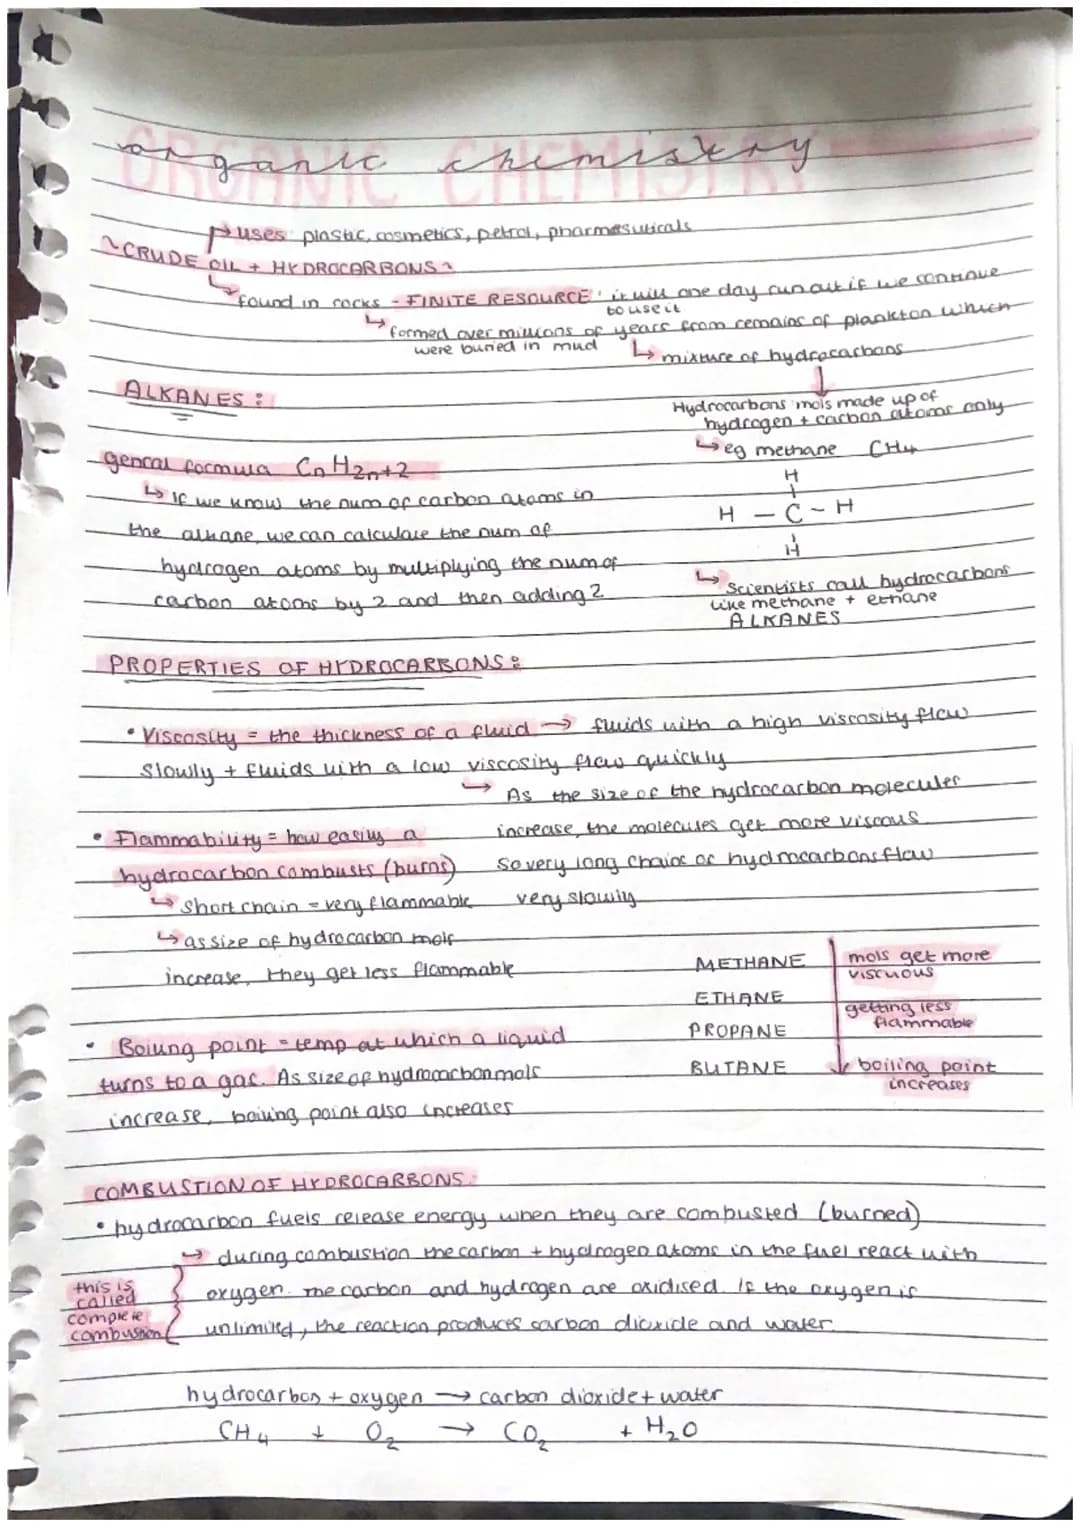 ORGANIC CHEMISTRY
organic chemistry
↱ uses: plastic, cosmetics, petrol, pharmasuticals
~CRUDE OIL + HYDROCARBONS~
↳ found in rocks - FINITE RESOURCE: it will one day run out if we continue
to use it
↳ formed over millions of years from remains of plankton which
were buried in mud
↳ mixture of hydrocarbons
↓
Hydrocarbons: mols made up of
hydrogen + carbon atoms only
↳ eg methane CH4
H
H - C - H
H
↳ Scientists call hydrocarbons
like methane + ethane
ALKANES
ALKANES:
genral formula CnH2n+2
↳ If we know the num of carbon atoms in
the alkane, we can calculate the num of
hydrogen atoms by multiplying the num of
carbon atoms by 2 and then adding 2
PROPERTIES OF HYDROCARBONS:
• Viscosity = the thickness of a fluid → fluids with a high viscosity flow
slowly + fluids with a low viscosity flow quickly
↳ As the size of the hydrocarbon molecules
increase, the molecules get more viscous
so very long chains of hydrocarbons flow
very slowly
• Flammability = how easily a
hydrocarbon combusts (burns)
↳ Short chain = very flammable
↳ as size of hydrocarbon mols
increase, they get less flammable
METHANE
ETHANE
PROPANE
BUTANE
mols get more
viscuous
getting less
flammable
boiling point
increases
• Boiling point = temp at which a liquid
turns to a gas. As size of hydrocarbon mols
increase, boiling point also increases
COMBUSTION OF HYDROCARBONS:
• hydrocarbon fuels release energy when they are combusted (burned)
↳ during combustion the carbon + hydrogen atoms in the fuel react with
oxygen. The carbon and hydrogen are oxidised. If the oxygen is
unlimited, the reaction produces carbon dioxide and water.
this is
called
complete
combustion
hydrocarbon + oxygen → carbon dioxide + water
CH4 + O2 → CO2 + H2O